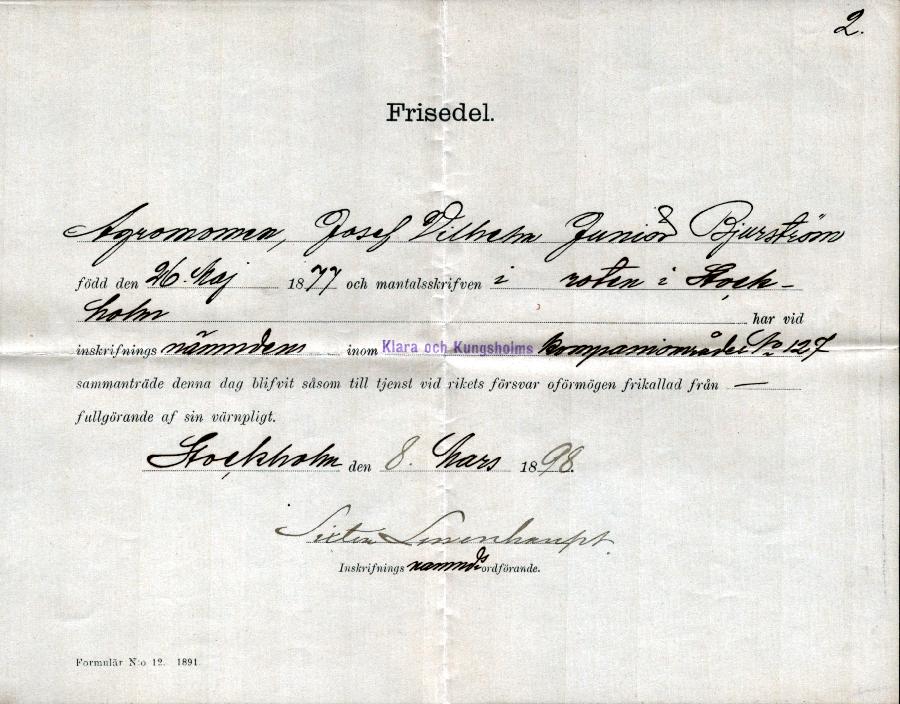 2.
Frisedel.
Agronomen, Josef Vilhelm Junior Bjurström
född den 26. Maj 1877 och mantalsskrifven i roten i Stock-
holm har vid
inskrifnings nämndens inom Klara och Kungsholms kompaniområdes No 127
sammanträde denna dag blifvit såsom till tjenst vid rikets försvar oförmögen frikallad från —
fullgörande af sin värnpligt.
Stockholm den 8. Mars 1898.
Sixten Lewenhaupt.
Inskrifnings nämnds ordförande.
Formulär N:o 12. 1891.